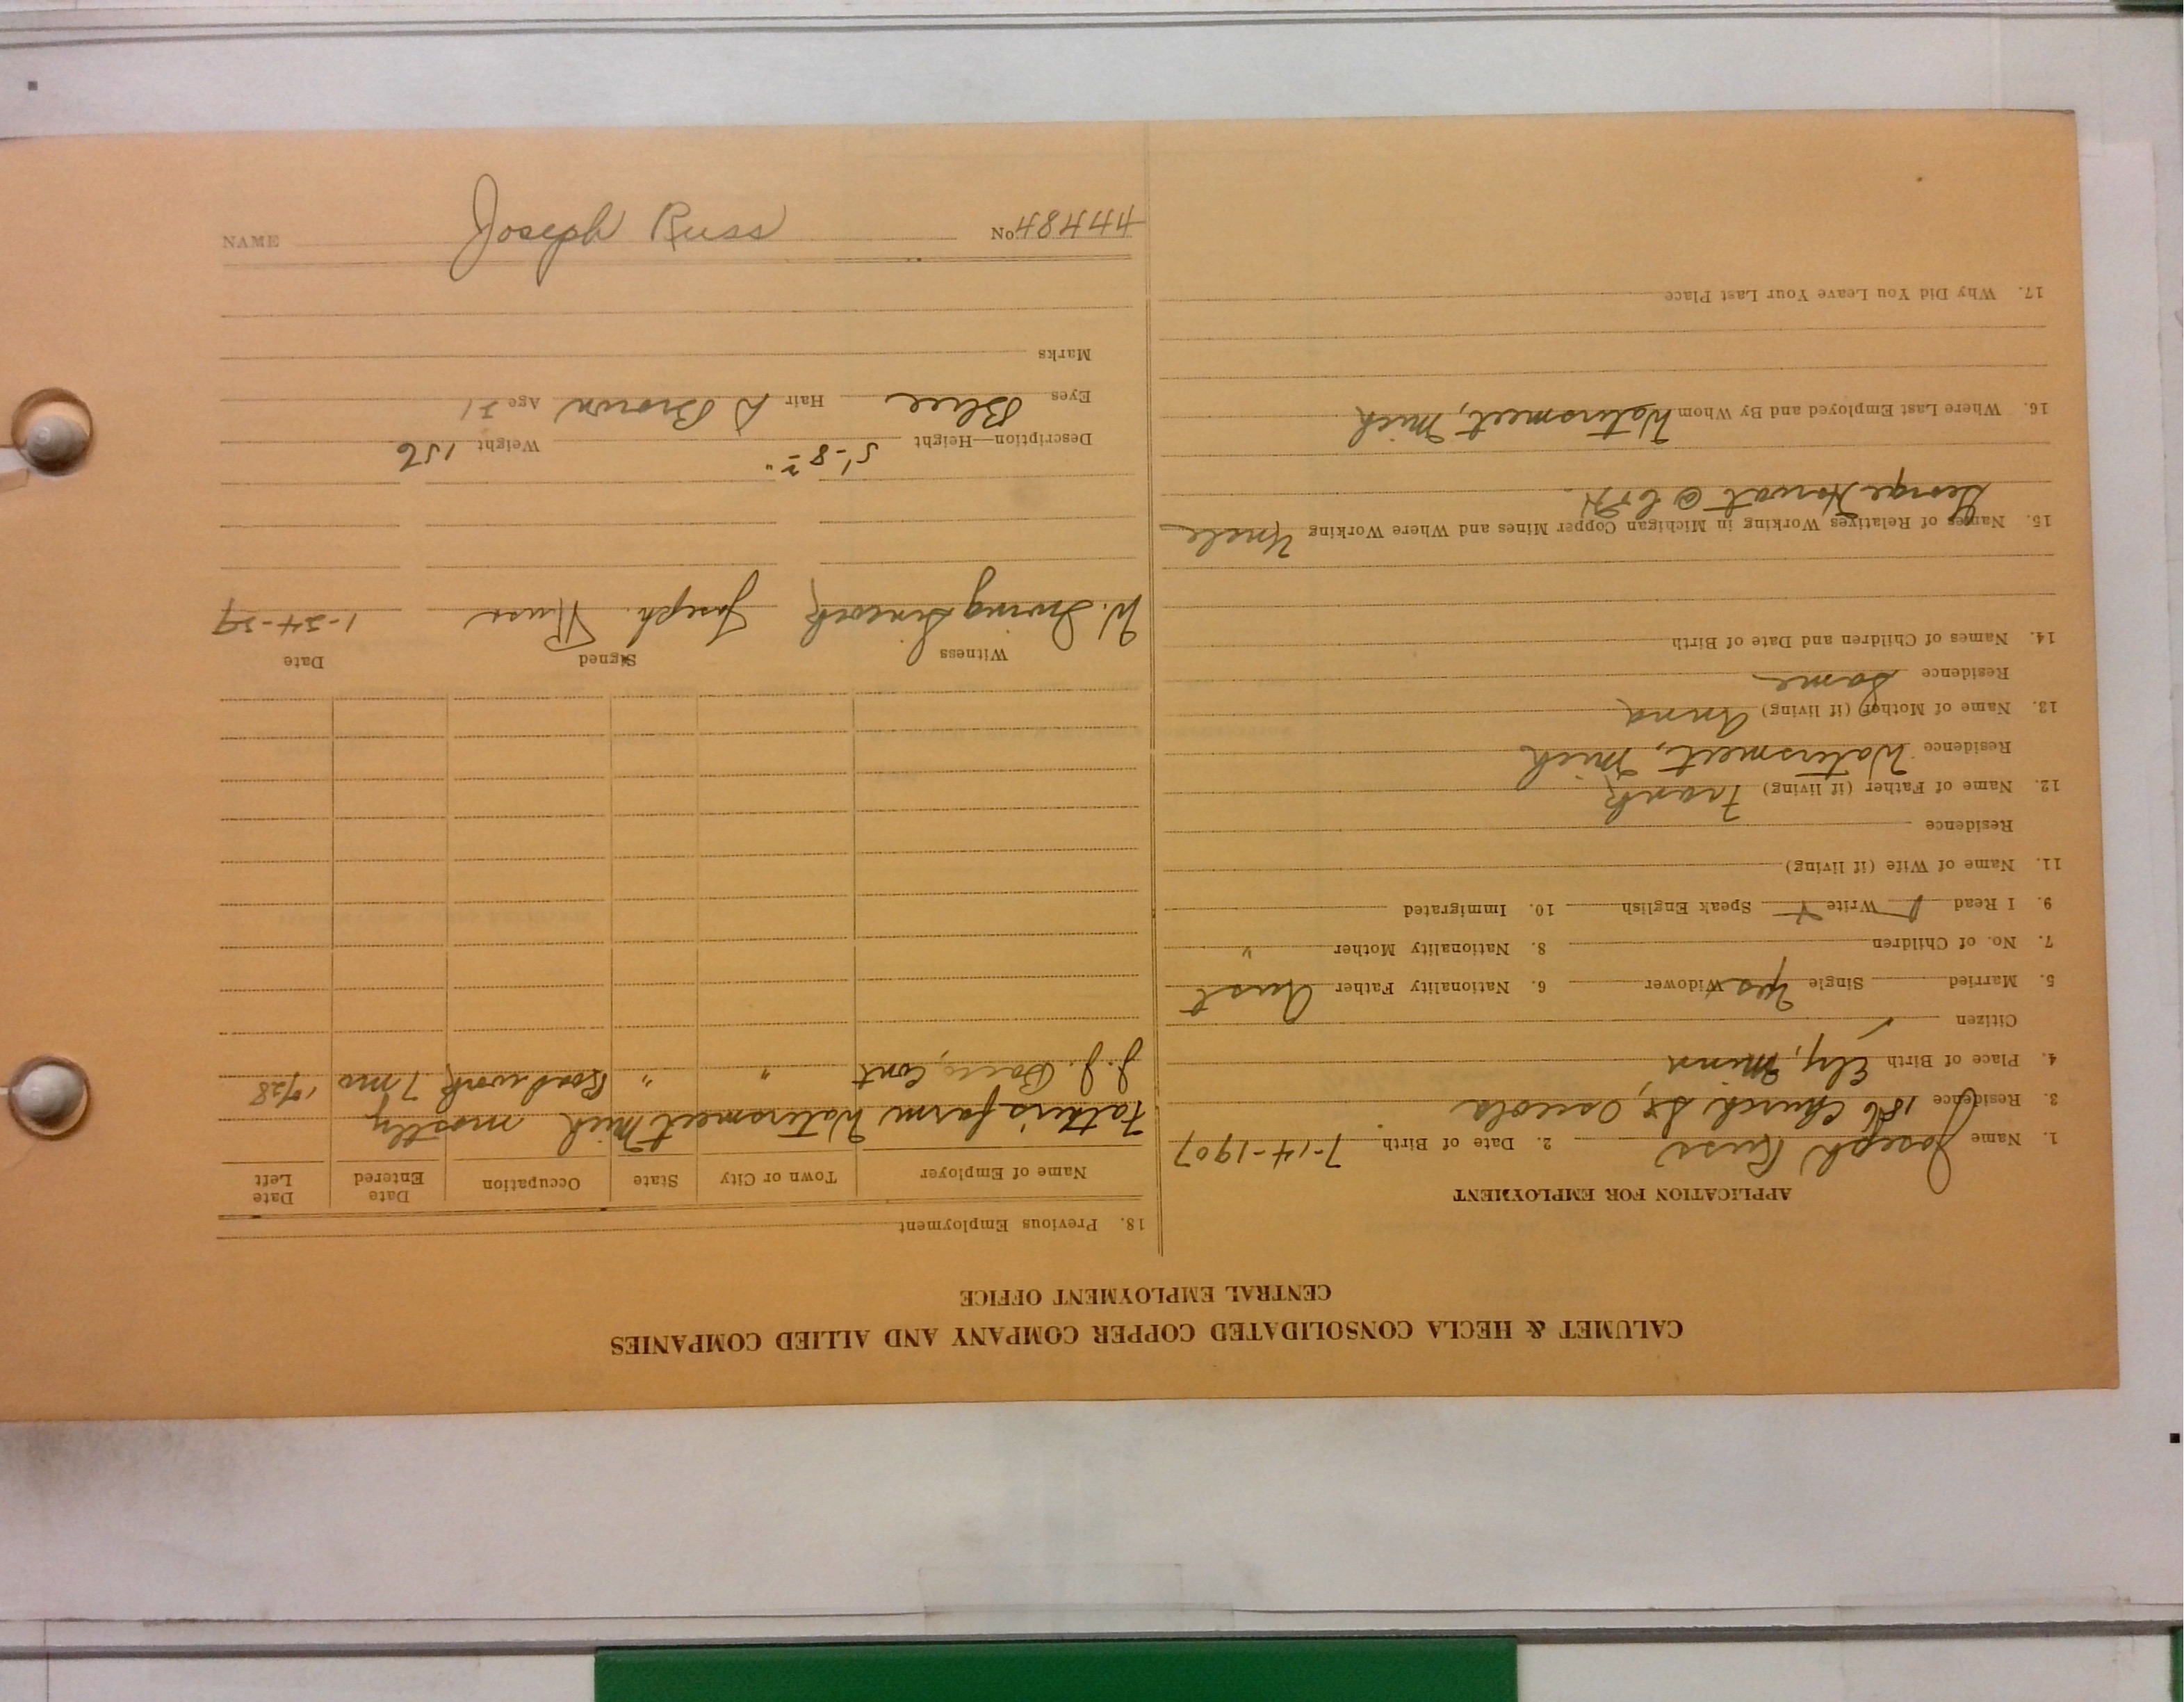 CALUMET & HECLA CONSOLIDATED COPPER COMPANY AND ALLIED COMPANIES
CENTRAL EMPLOYMENT OFFICE
APPLICATION FOR EMPLOYMENT
1. Name Joseph Russ 2. Date of Birth 7-14-1907
3. Residence 186 Church St, Osceola
4. Place of Birth Ely, Minn
Citizen ✓
5. Married Single Yes Widower 6. Nationality Father Aust
7. No. of Children 8. Nationality Mother "
9. I Read Write Speak English 10. Immigrated
11. Name of Wife (if living)
Residence
12. Name of Father (if living) Frank
Residence Watersmeet, Mich
13. Name of Mother (if living) Anna
Residence Same
14. Names of Children and Date of Birth
15. Names of Relatives Working in Michigan Copper Mines and Where Working Uncle
George Horvat @ C&H.
16. Where Last Employed and By Whom Watersmeet, Mich
17. Why Did You Leave Your Last Place
18. Previous Employment
Name of Employer Town or City State Occupation Date Entered Date Left
Father's farm Watersmeet Mich mostly
J. J. Cont " " Road work 7 mo 1928
Witness Signed Date
W. Irving Joseph Russ 1-24-29
Description—Height 5'-8½" Weight 156
Eyes Blue Hair D Brown Age 21
Marks
NAME Joseph Russ No 44484